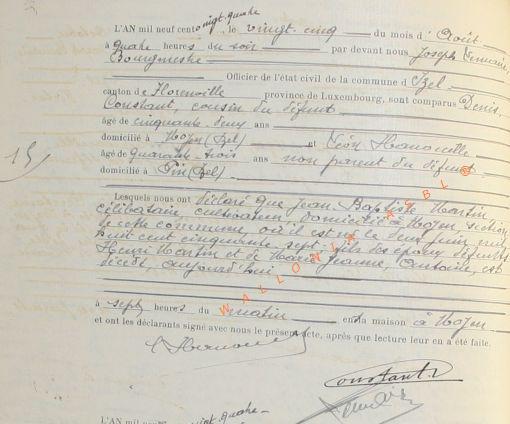 L'AN mil neuf cent vingt-quatre, le vingt cinq du mois d'Août
à quatre heures du soir par devant nous Joseph
Bourgmestre
Officier de l'état civil de la commune d'Izel
canton de Florenville province de Luxembourg, sont comparus Denis,
Constant, cousin du défunt
âgé de cinquante deux ans
domicilié à Moyen (Izel) et Léon
âgé de quarante trois ans non parent du défunt
domicilié à Pin (Izel)
15
Lesquels nous ont déclaré que Jean Baptiste Martin,
célibataire, cultivateur, domicilié à Moyen, section
de cette commune, où il est né le deux juin mil
huit cent cinquante sept, fils des époux défunts
Henri Martin et de Marie Jeanne, Antoine, est
décédé, aujourd'hui
à sept heures du matin en sa maison à Moyen
et ont les déclarants signé avec nous le présent acte, après que lecture leur en a été faite.
Constant
L'AN mil neuf vingt-quatre
WALLONIE ASBL ©